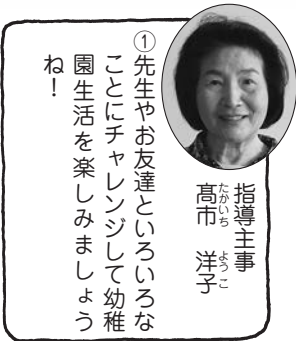 指導主事
髙市 洋子
たかいち ようこ
①先生やお友達といろいろな
ことにチャレンジして幼稚
園生活を楽しみましょう
ね！